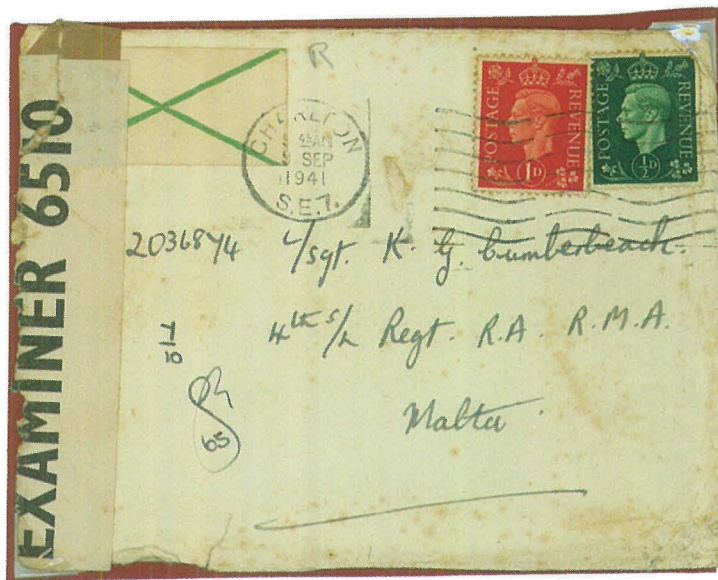 EXAMINER 6510
R
CHARLTON
AM
SEP
1941
S.E.7.
POSTAGE REVENUE
1D
POSTAGE REVENUE
½D
2036874 L/Sgt. K. G. Cumberbeach.
4th S/L Regt. R.A. R.M.A.
Malta
65